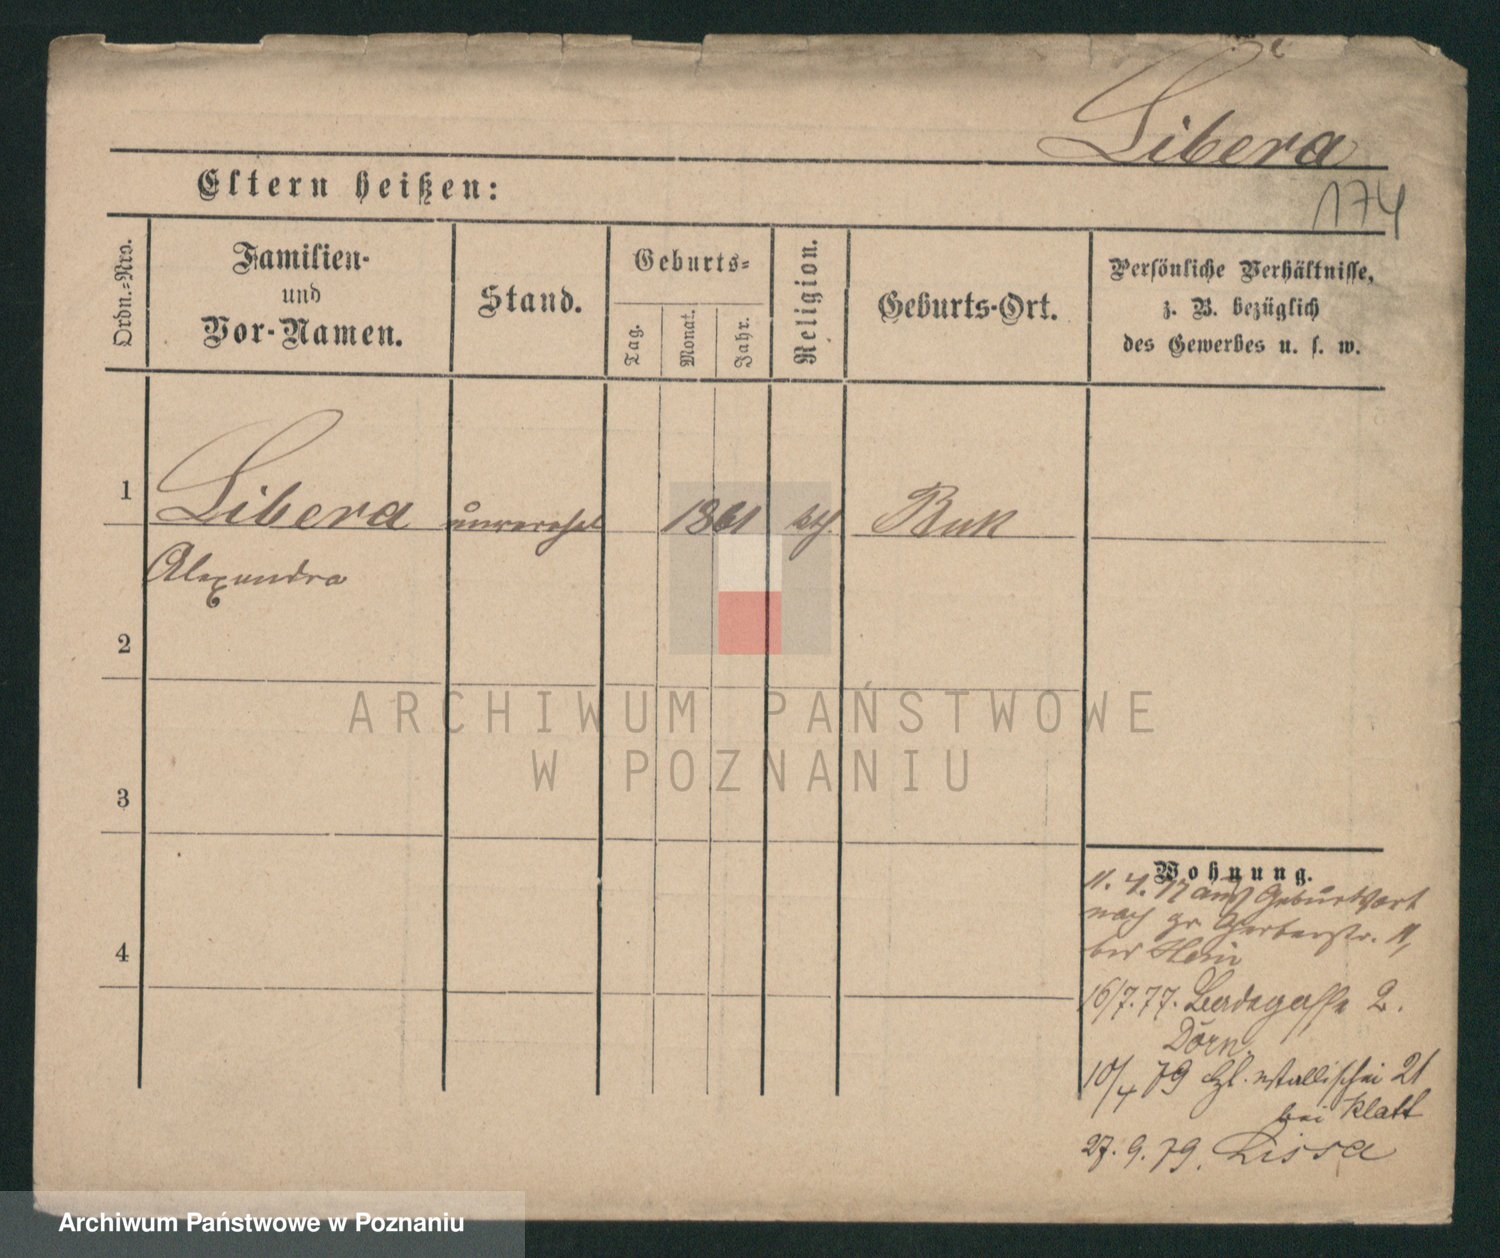 Libera
174
Eltern heißen:
Ordn.-Nro.
Familien-
und
Vor-Namen.
Stand.
Geburts-
Tag.
Monat.
Jahr.
Religion.
Geburts-Ort.
Persönliche Verhältnisse,
z. B. bezüglich
des Gewerbes u. s. w.
1
Libera
unverehel
1861
kth.
Buk
Alexandra
2
ARCHIWUM PAŃSTWOWE
W POZNANIU
3
4
Wohnung.
11. 4. 77 aus Geburtsort
nach gr Gerberstr. 11,
bei
16/7. 77. 2.
Dorn.
10/4 79 Wallischei 21
bei Klatt
27. 9. 79. Lissa
Archiwum Państwowe w Poznaniu